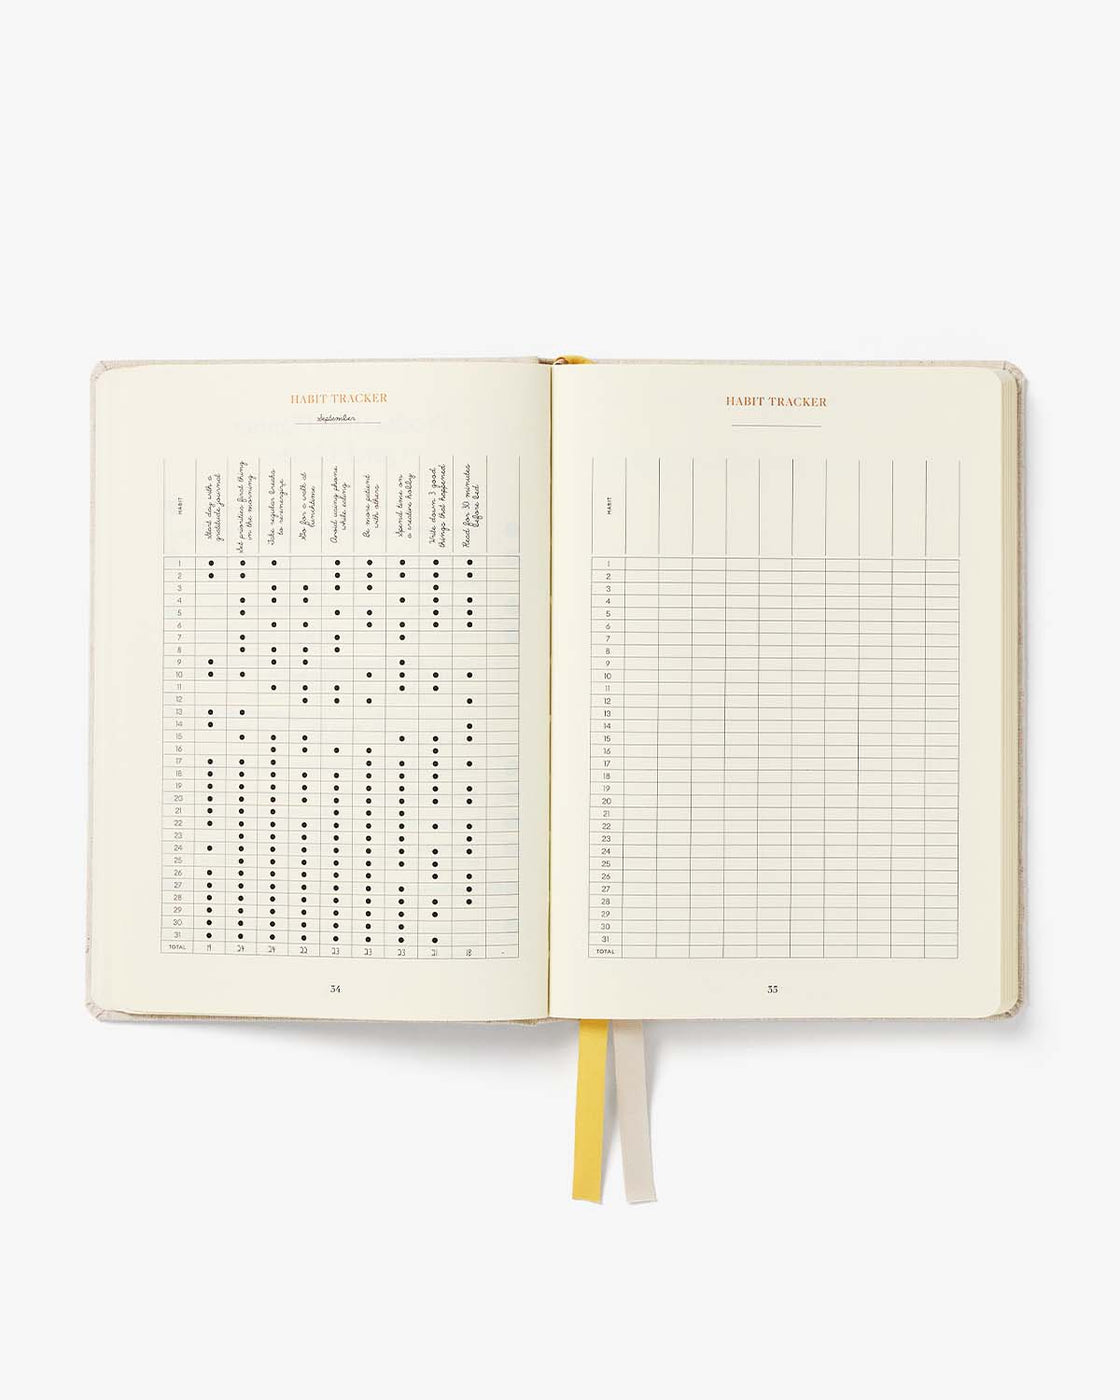 HABIT TRACKER
September
HABIT
Start day with a
gratitude journal
Set priorities first thing
in the morning
Take regular breaks
to reenergize
Go for a walk at
lunchtime
Avoid using phone
while eating
Be more patient
with others
Spend time on
a creative hobby
Write down 3 good
things that happened
Read for 30 minutes
before bed
1
2
3
4
5
6
7
8
9
10
11
12
13
14
15
16
17
18
19
20
21
22
23
24
25
26
27
28
29
30
31
TOTAL 19 24 24 22 23 23 23 21 18 -
34
HABIT TRACKER
HABIT
1
2
3
4
5
6
7
8
9
10
11
12
13
14
15
16
17
18
19
20
21
22
23
24
25
26
27
28
29
30
31
TOTAL
35